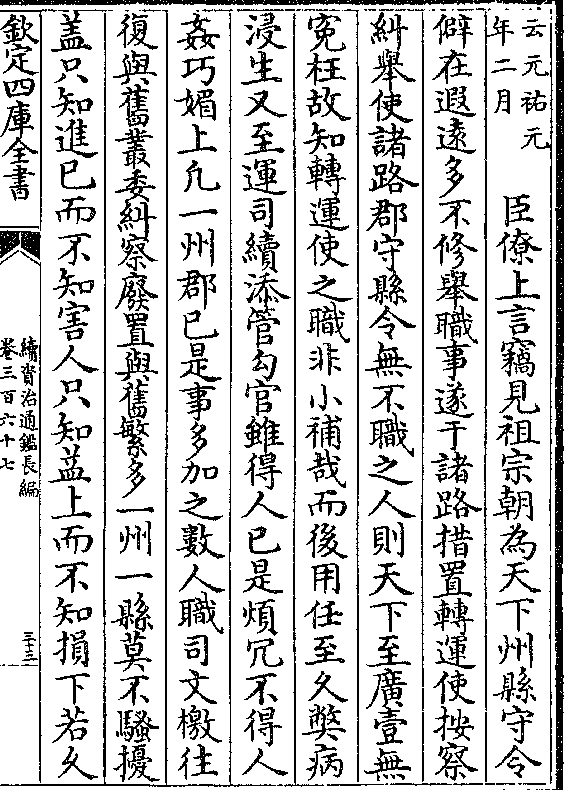 云元祐元
年二月
臣僚上言竊見祖宗朝為天下州縣守令
僻在遐遠多不修舉職事遂于諸路措置轉運使按察
糾舉使諸路郡守縣令無不職之人則天下至廣壹無
寃枉故知轉運使之職非小補哉而後用任至久獘病
浸生又至運司續添管勾官雖得人已是煩冗不得人
姦巧媚上凢一州郡已是事多加之數人職司文檄往
復與舊叢委糾察廢置與舊繁多一州一縣莫不騷擾
盖只知進已而不知害人只知益上而不知損下若久
欽定四庫全書
續資治通鑑長編
卷三百六十七
三十三